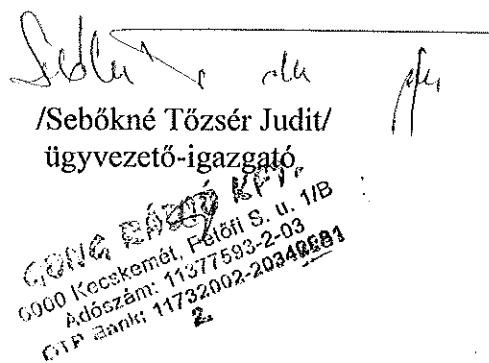 /Sebőkné Tőzsér Judit/
ügyvezető-igazgató
GONG RÁDIÓ KFT.
6000 Kecskemét, Petőfi S. u. 1/B
Adószám: 11377593-2-03
OTP Bank: 11732002-20340681
2.